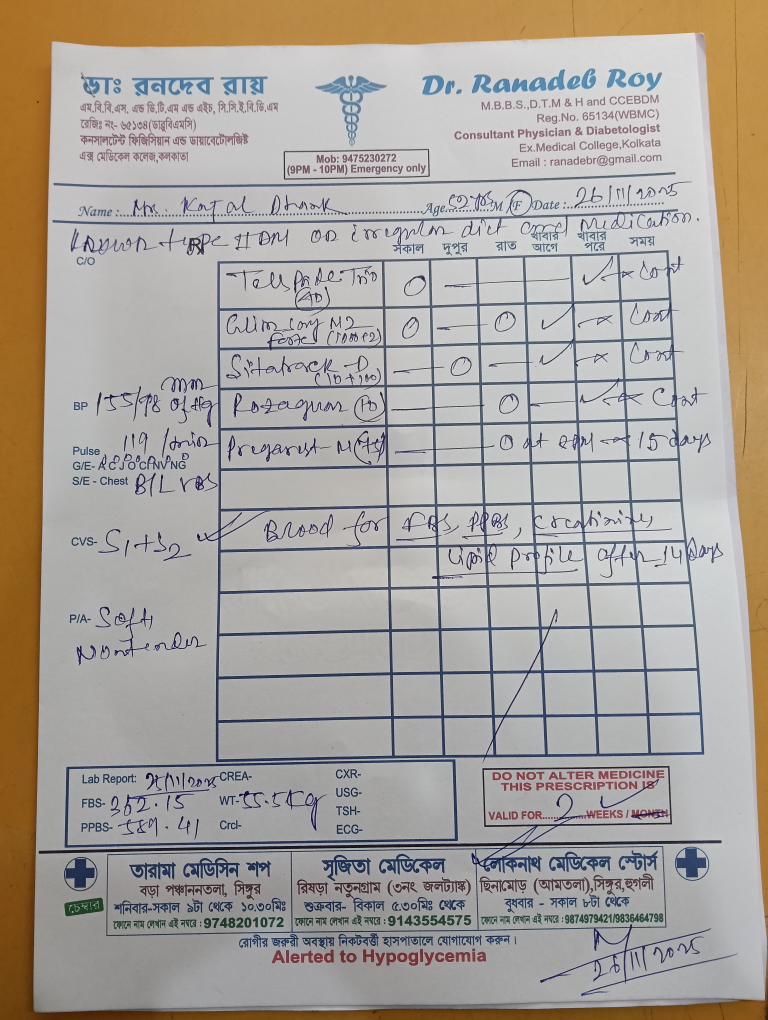 ডাঃ রনদেব রায়
এম.বি.বি.এস, এন্ড ডি.টি.এম এন্ড এইচ, সি.সি.ই.বি.ডি.এম
রেজিঃ নং- ৬৫১৩৪(ডাব্লুবিএমসি)
কনসালটেন্ট ফিজিসিয়ান এন্ড ডায়াবেটোলজিষ্ট
এক্স মেডিকেল কলেজ,কলকাতা
Mob: 9475230272
(9PM - 10PM) Emergency only
Dr. Ranadeb Roy
M.B.B.S.,D.T.M & H and CCEBDM
Reg.No. 65134(WBMC)
Consultant Physician & Diabetologist
Ex.Medical College,Kolkata
Email : ranadebr@gmail.com
Name : Kajal Age 52 yrs M/F Date : 26/11/2025
Known type II DM on irregular diet and Medication.
C/O
সকাল দুপুর রাত খাবার আগে খাবার পরে সময়
O — — — ✓ Cont
(40)
M2 forte (1000+2) O — O ✓ Cont
Sitatrack-D (10+100) — O — ✓ Cont
BP 155/98 mm of Hg
(10) — O — ✓ Cont
Pulse 119 /min
M (75) — O at 15 days
G/E-
S/E - Chest B/L VBS
CVS- S1+S2 ✓
Blood for FBS, PPBS, Creatinine,
Lipid Profile after 14 days
P/A- Soft,
Nontender
Lab Report: 25/11/2025
FBS- 352.15
PPBS- 589.41
CREA-
WT- 55.5 Kg
Crcl-
CXR-
USG-
TSH-
ECG-
DO NOT ALTER MEDICINE
THIS PRESCRIPTION IS
VALID FOR 2 WEEKS / MONTH
চেম্বার
তারামা মেডিসিন শপ
বড়া পঞ্চাননতলা, সিঙ্গুর
শনিবার-সকাল ৯টা থেকে ১০.৩০মিঃ
ফোনে নাম লেখান এই নম্বরে : 9748201072
সৃজিতা মেডিকেল
রিষড়া নতুনগ্রাম (৩নং জলট্যাঙ্ক)
শুক্রবার- বিকাল ৫.৩০মিঃ থেকে
ফোনে নাম লেখান এই নম্বরে : 9143554575
লোকনাথ মেডিকেল স্টোর্স
ছিনামোড় (আমতলা),সিঙ্গুর,হুগলী
বুধবার - সকাল ৮টা থেকে
ফোনে নাম লেখান এই নম্বরে : 9874979421/9836464798
রোগীর জরুরী অবস্থায় নিকটবর্ত্তী হাসপাতালে যোগাযোগ করুন।
Alerted to Hypoglycemia
26/11/2025